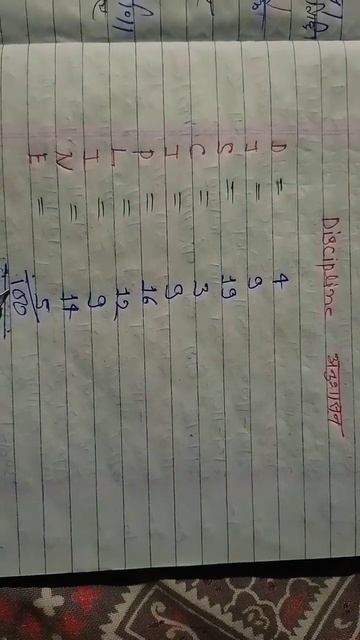 Discipline अनुशासन
D = 4
I = 9
S = 19
C = 3
I = 9
P = 16
L = 12
I = 9
N = 14
E = 5
100